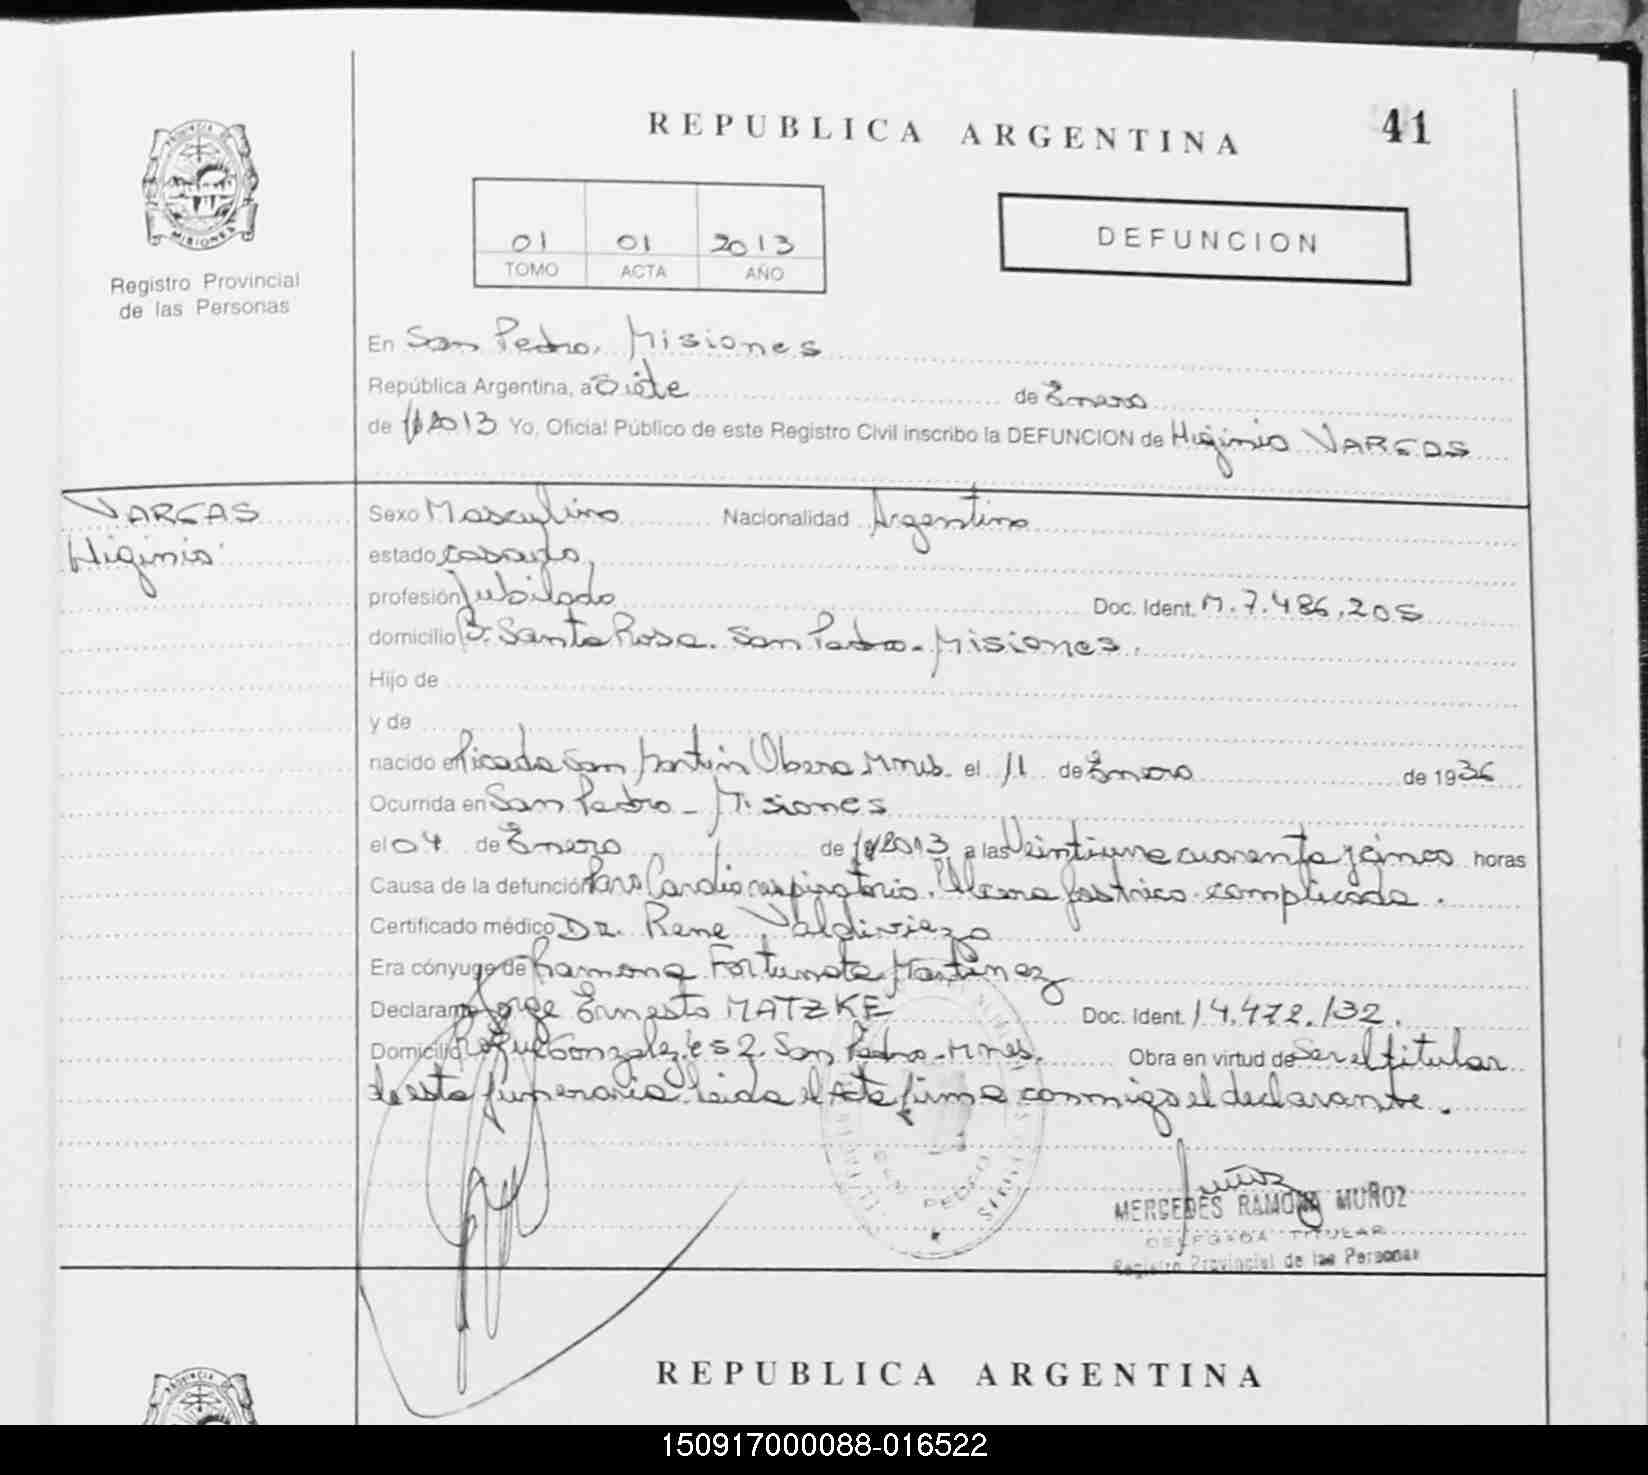 REPUBLICA ARGENTINA
41
PROVINCIA DE
MISIONES
Registro Provincial
de las Personas
01 01 2013
TOMO ACTA AÑO
DEFUNCION
En San Pedro, Misiones
República Argentina, a Siete de Enero
de 2013 Yo, Oficial Público de este Registro Civil inscribo la DEFUNCION de Higinio VARGAS
VARGAS
Higinio
Sexo Masculino Nacionalidad Argentino
estado casado,
profesión Jubilado Doc. Ident. M.7.486.205
domicilio Bº. Santa Rosa. San Pedro - Misiones.
Hijo de
y de
nacido en Picada San Martin Obera Mnes. el 11 de Enero de 1936
Ocurrida en San Pedro - Misiones
el 04 de Enero de 2013 a las Veintiuna cuarenta y cinco horas
Causa de la defunción Paro Cardio respiratorio. Ulcera gastrica complicada.
Certificado médico Dr. Rene Valdiviezo
Era cónyuge de Ramona Fortunata Martinez
Declarante Jorge Ernesto MATZKE Doc. Ident. 14.472.132.
Domicilio Roque Gonzalez e s 2. San Pedro - Mnes. Obra en virtud de Ser el titular
de esta funeraria. leida el Acta firma conmigo el declarante.
SAN PEDRO
MISIONES
MERCEDES RAMONA MUÑOZ
DELEGADA TITULAR
Registro Provincial de las Personas
REPUBLICA ARGENTINA
PROVINCIA DE
150917000088-016522